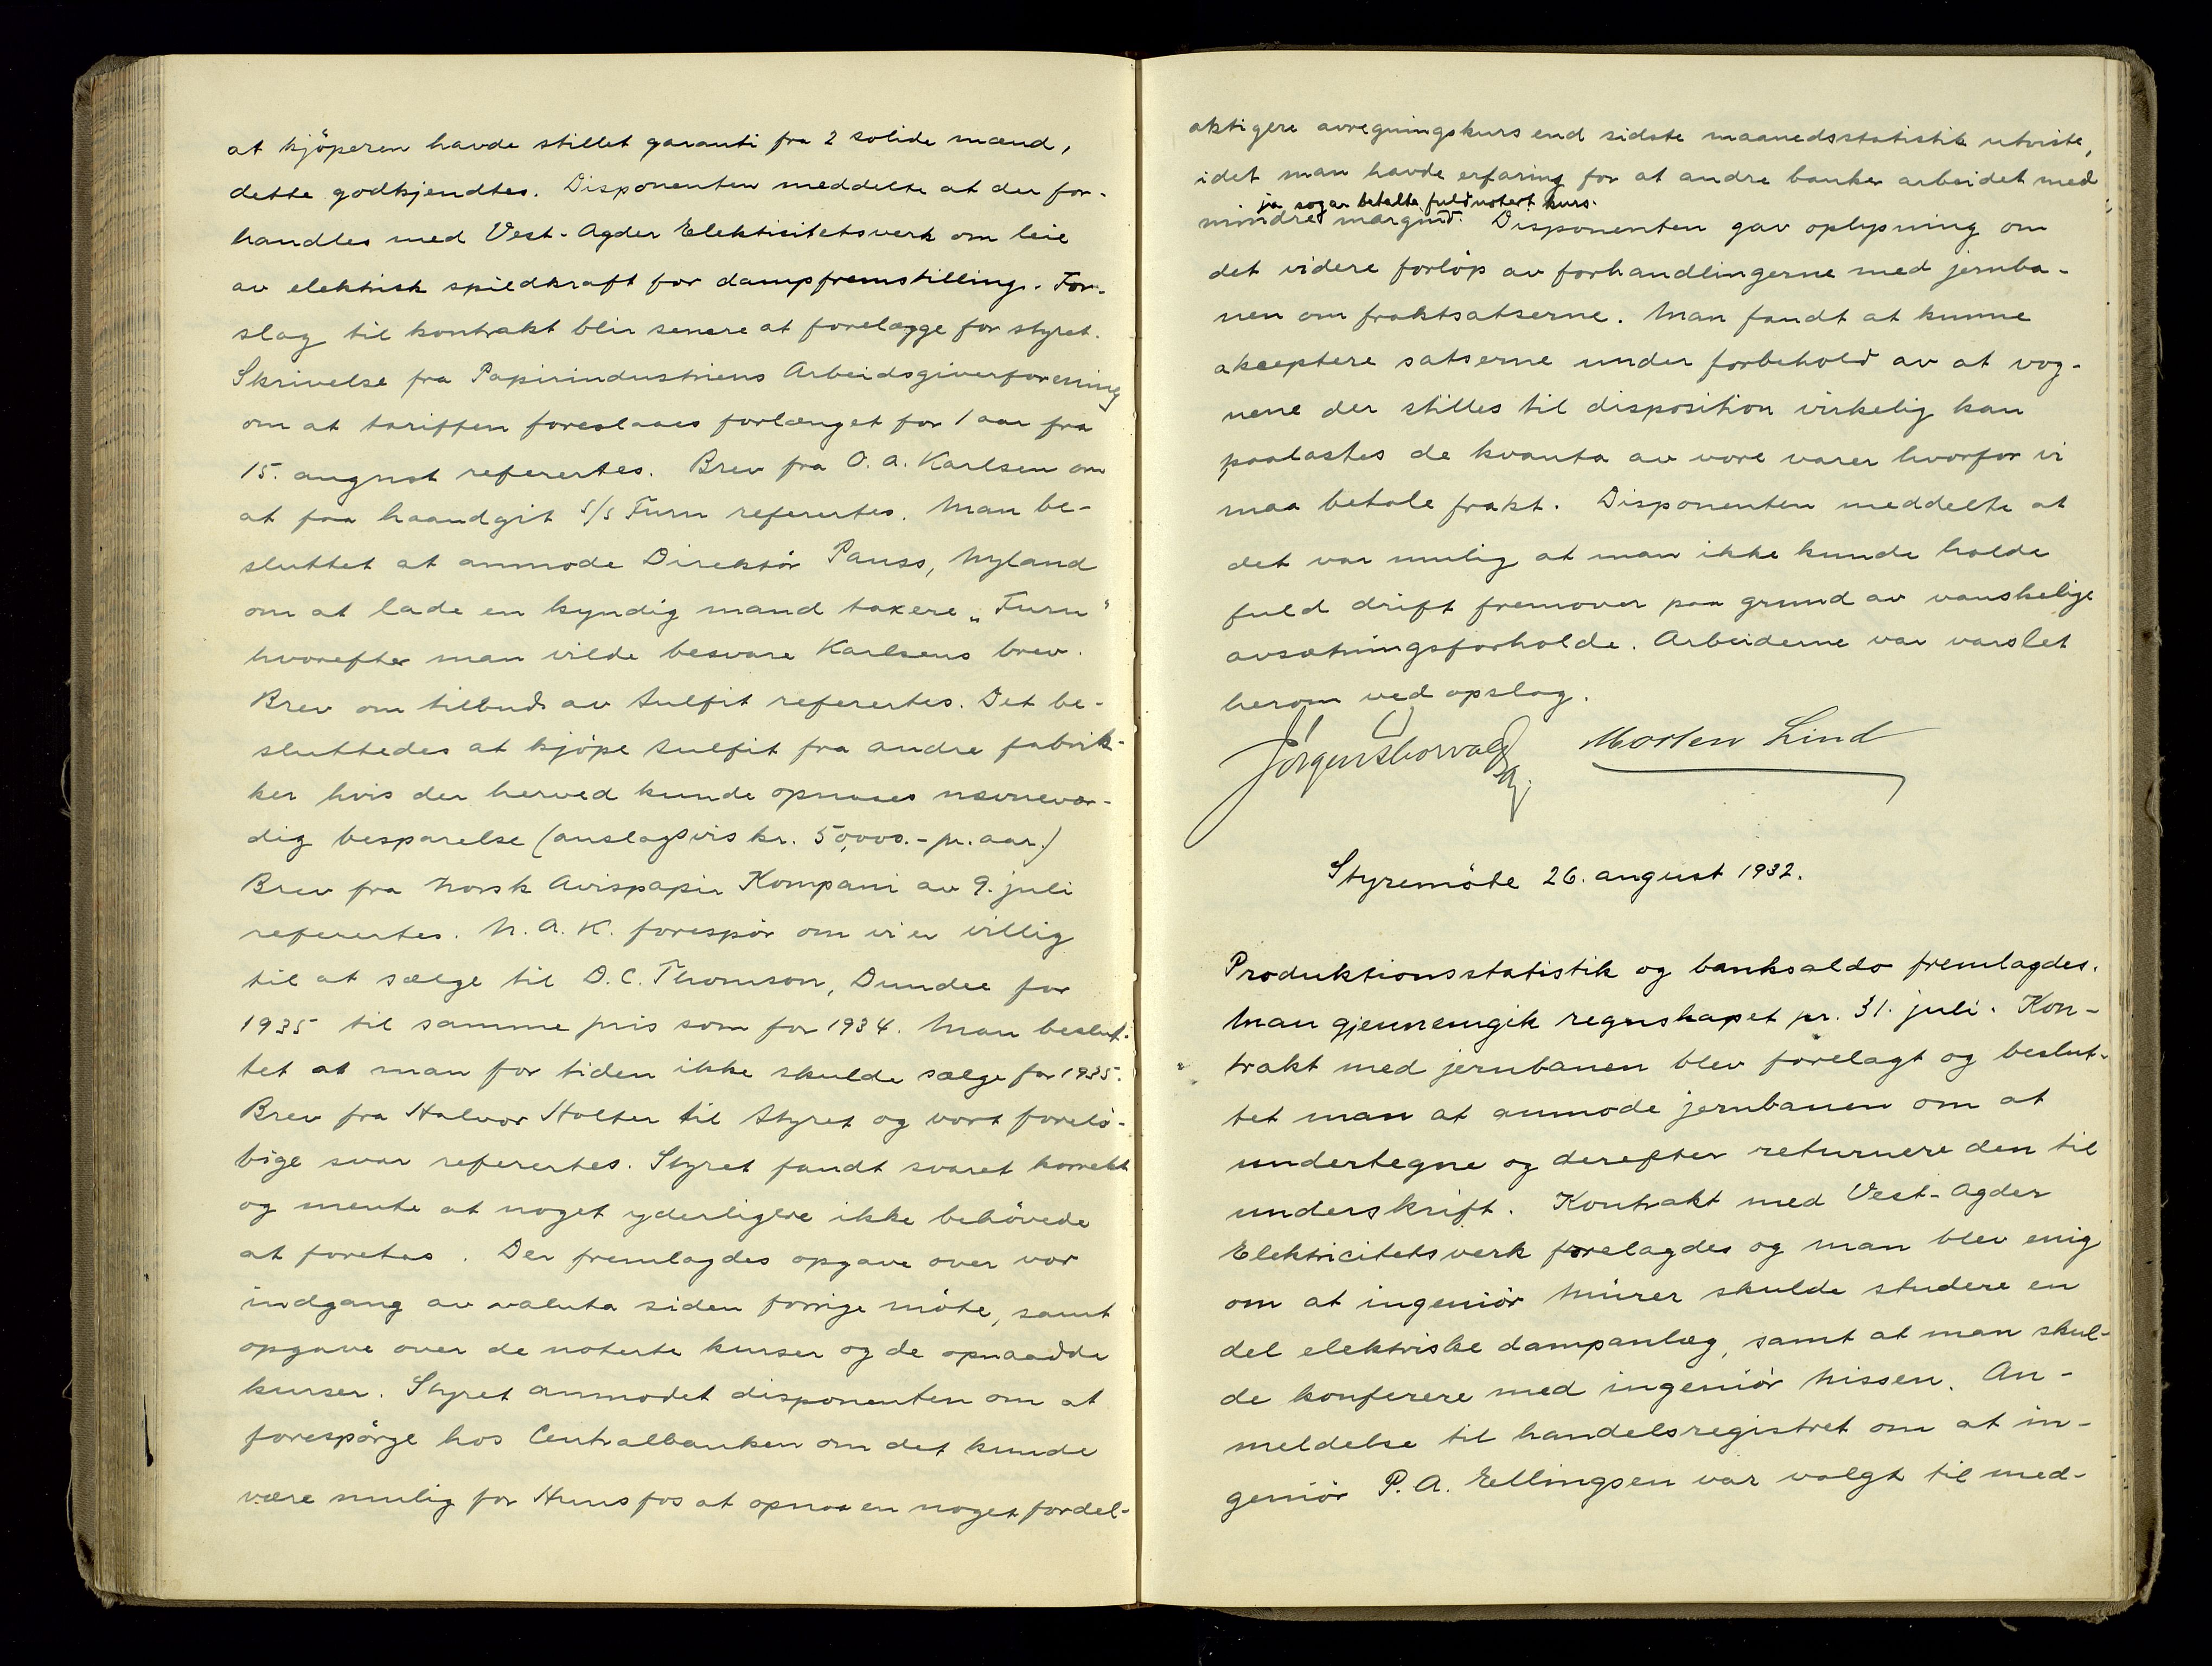 at kjöperen havde stillet garanti fra 2 solide mænd,
dette godkjendtes. Disponenten meddelte at der for-
handles med Vest-Agder Elektricitetsverk om leie
av elektrisk spildkraft for dampfremstilling. For-
slag til kontrakt blir senere at forelægge for styret.
Skrivelse fra Papirindustriens Arbeidsgiverforening
om at tariffen foreslaaes forlænget for 1 aar fra
15. august referertes. Brev fra O. A. Karlsen om
at faa haandgit S/S Turn referertes. Man be-
sluttet at anmode Direktör Pauss, Nyland
om at lade en kyndig mand taxere „Turn"
hvorefter man vilde besvare Karlsens brev.
Brev om tilbud av Sulfit referertes. Det be-
sluttedes at kjöpe Sulfit fra andre fabrik-
ker hvis der herved kunde opnaaes nævnevær-
dig besparelse (anslagsvis kr. 50,000.- pr. aar.)
Brev fra Norsk Avispapir Kompani av 9. juli
referertes. N. A. K. forespör om vi er villig
til at sælge til D. C. Thomson, Dundee for
1935 til samme pris som for 1934. Man beslut-
tet at man for tiden ikke skulde sælge for 1935.
Brev fra Halvor Holter til Styret og vort forelö-
bige svar referertes. Styret fandt svaret korrekt
og mente at noget yderligere ikke behövede
at foretas. Der fremlagdes opgave over vor
indgang av valuta siden forrige möte, samt
opgave over de noterte kurser og de opnaadde
kurser. Styret anmodet disponenten om at
forespörge hos Centralbanken om det kunde
være mulig for Hunsfos at opnaa en noget fordel-
aktigere avregningskurs end sidste maanedsstatistik utviste,
idet man havde erfaring for at andre banker arbeidet med
ja sogar betalte fuld notert kurs.
mindre margin. Disponenten gav oplysning om
det videre forlöp av forhandlingerne med jernba-
nen om fraktsatserne. Man fandt at kunne
akceptere satserne under forbehold av at vog-
nene der stilles til disposition virkelig kan
paalastes de kvanta av vore varer hvorfor vi
maa betale frakt. Disponenten meddelte at
det var mulig at man ikke kunde holde
fuld drift fremover paa grund av vanskelige
avsætningsforholde. Arbeiderne var varslet
herom ved opslag.
Morten Lind
Styremöte 26. august 1932.
Produktionsstatistik og banksaldo fremlagdes.
Man gjennemgik regnskapet pr. 31. juli. Kon-
trakt med jernbanen blev forelagt og beslut-
tet man at anmode jernbanen om at
undertegne og derefter returnere den til
underskrift. Kontrakt med Vest-Agder
Elektricitetsverk forelagdes og man blev enig
om at ingeniör Mürer skulde studere en
del elektriske dampanlæg, samt at man skul-
de konferere med ingeniör Nissen. An-
meldelse til handelsregistret om at in-
geniör P. A. Ellingsen var valgt til med-